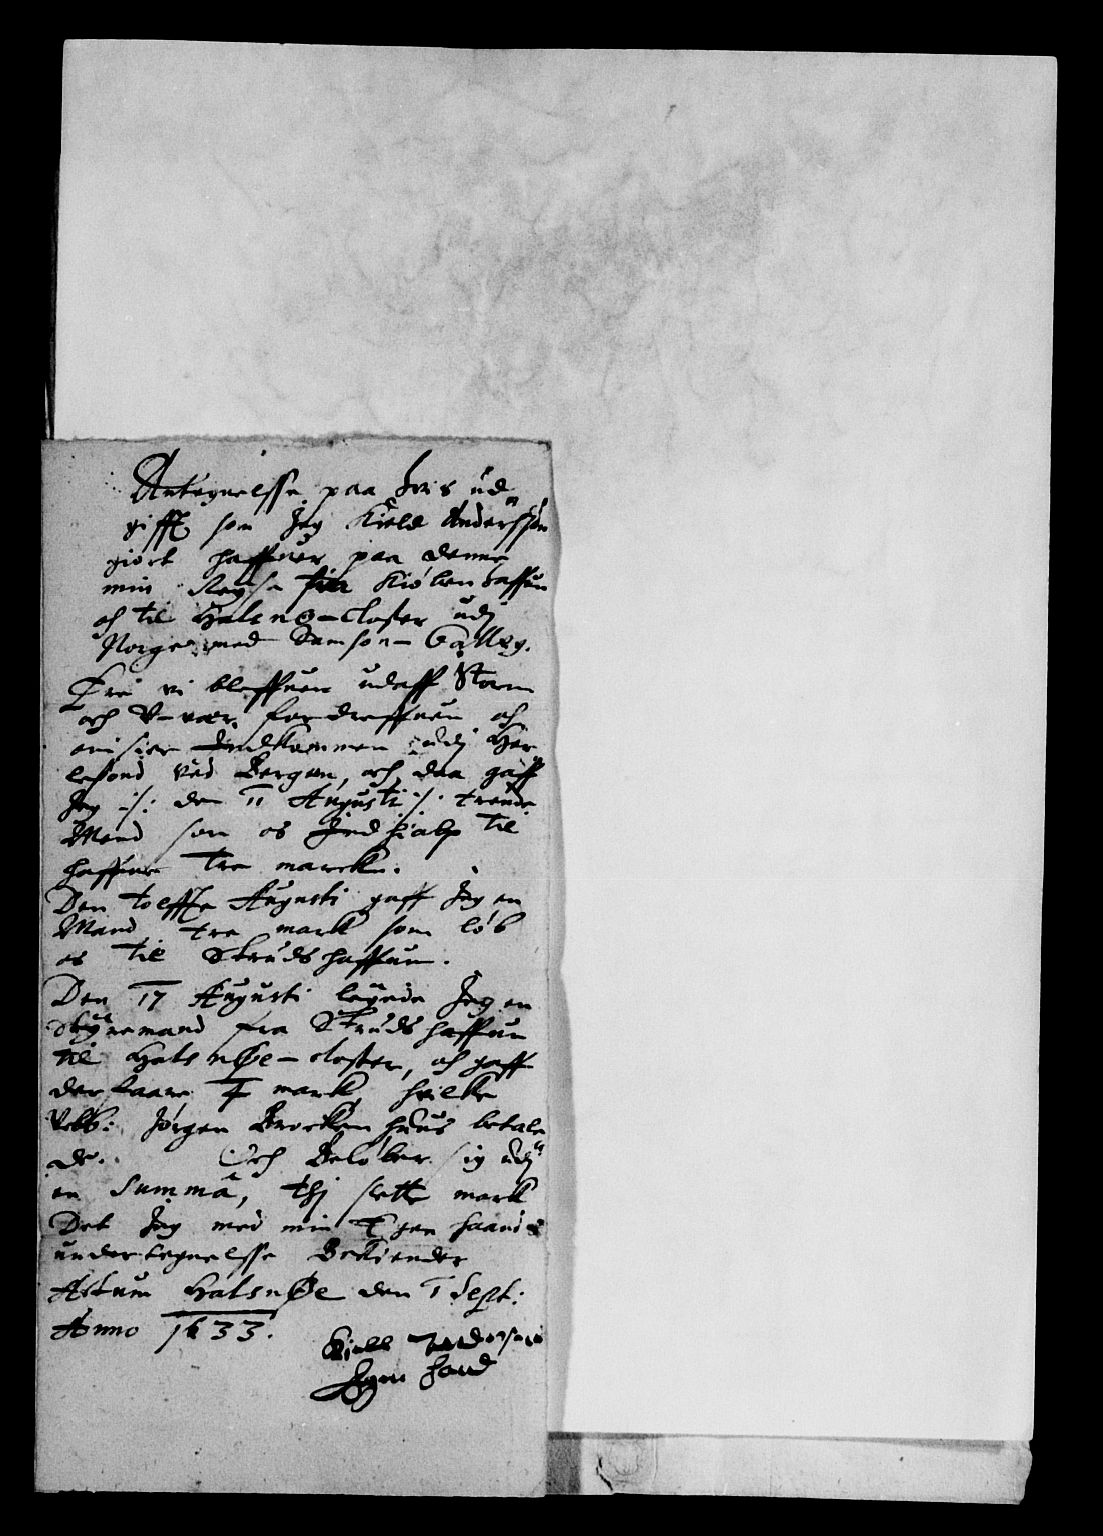 Antegnelsse paa hvis ud
gifft som Jeg Kield Anderssøn
giort haffuer paa denne
min Reysse fra Kiøbenhaffun
och til Halsnø-Closter udj
Norge med Samson- Galley.
vi bleffuen udaff Storm
och U-vær, fordreffuen och
Indkommen udj Her
lefiord ved Bergen, och daa gaff
Jeg :/: den 11 Augusti :/: trende
Mend som os Ind hialp til
haffne tre marcke.
Den tolffte Augusti gaff Jeg en
Mand tre mark som løb
os til Strudshaffuen.
Den 17 Augusti leyede Jeg en
Styremand fra Strudshaffuen
til Halsnøe-closter, och gaff
der faare 4 mark, hvilke
Velb: Jørgen Brockenhuus betale
de. Och Beløber sig udj
en Summa, thj slette mark
Det Jeg med min Egen haands
undertegnelsse Bekiender
Actum Halsnøe den 1 Sept:
Anno 1633.
Kield Anderssøn
Egen Hand